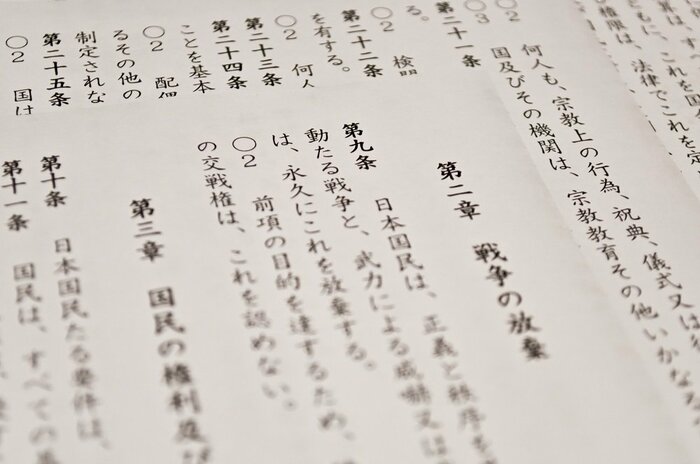 権限は、法律でこれを定
○2 何人も、宗教上の行為、祝典、儀式又は行
○3 国及びその機関は、宗教教育その他いかなる
第二十一条
る。
○2 検閲
第二十二条
を有する。
○2 何人
第二十三条
第二十四条
ことを基本
○2 配偶
るその他の
制定されな
第二十五条
○2 国は
第二章 戦争の放棄
第九条 日本国民は、正義と秩序を
動たる戦争と、武力による威嚇又は
は、永久にこれを放棄する。
○2 前項の目的を達するため、
の交戦権は、これを認めない。
第三章 国民の権利及び
第十条 日本国民たる要件は、
第十一条 国民は、すべての基